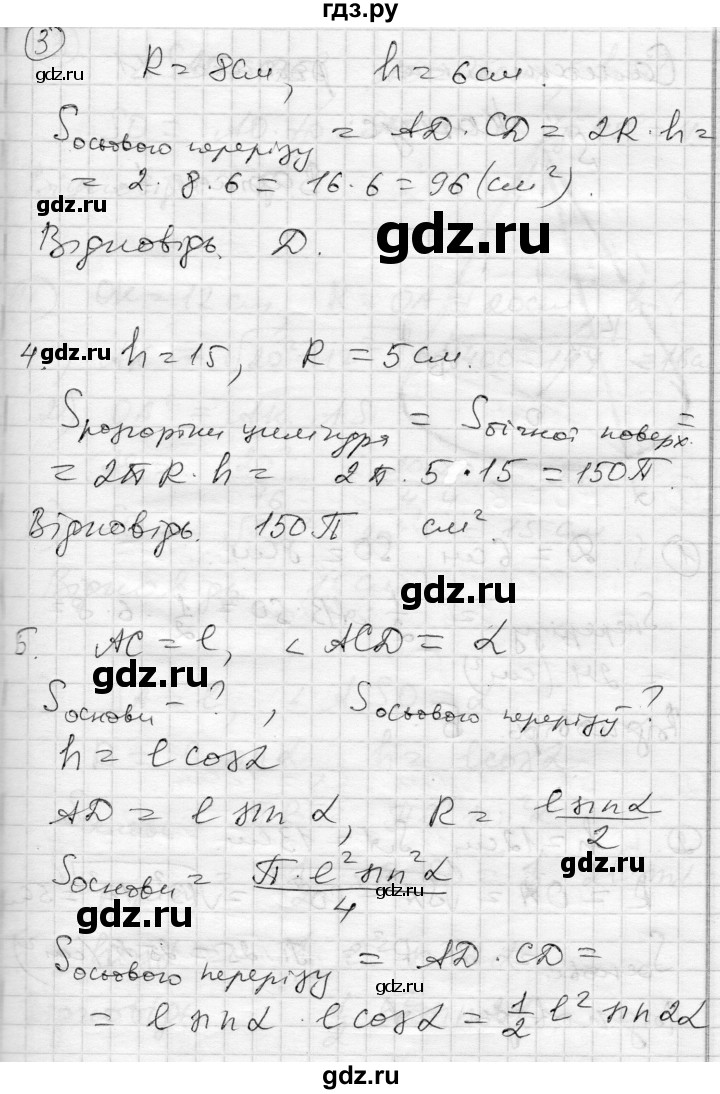 гдз.ру
③
R = 8см, h = 6см.
Sосьового перерізу = AD · CD = 2R · h =
= 2 · 8 · 6 = 16 · 6 = 96 (см²).
gdz.ru
Відповідь. Д.
gdz.ru
4. h = 15, R = 5см.
gdz.ru
Sрозгортки циліндра = Sбічної поверх. =
= 2πR · h = 2π · 5 · 15 = 150π.
Відповідь. 150π см².
gdz.ru
5. AC = l, < ACD = α
gdz.ru
Sоснови - ?, Sосьового перерізу - ?
h = l cosα
AD = l sinα, R = l sinα / 2
gdz.ru
Sоснови = π · l² sin²α / 4
gdz.ru
gdz.ru
Sосьового перерізу = AD · CD =
gdz.ru
= l sinα · l cosα = 1/2 l² sin2α
gdz.ru
gdz.ru